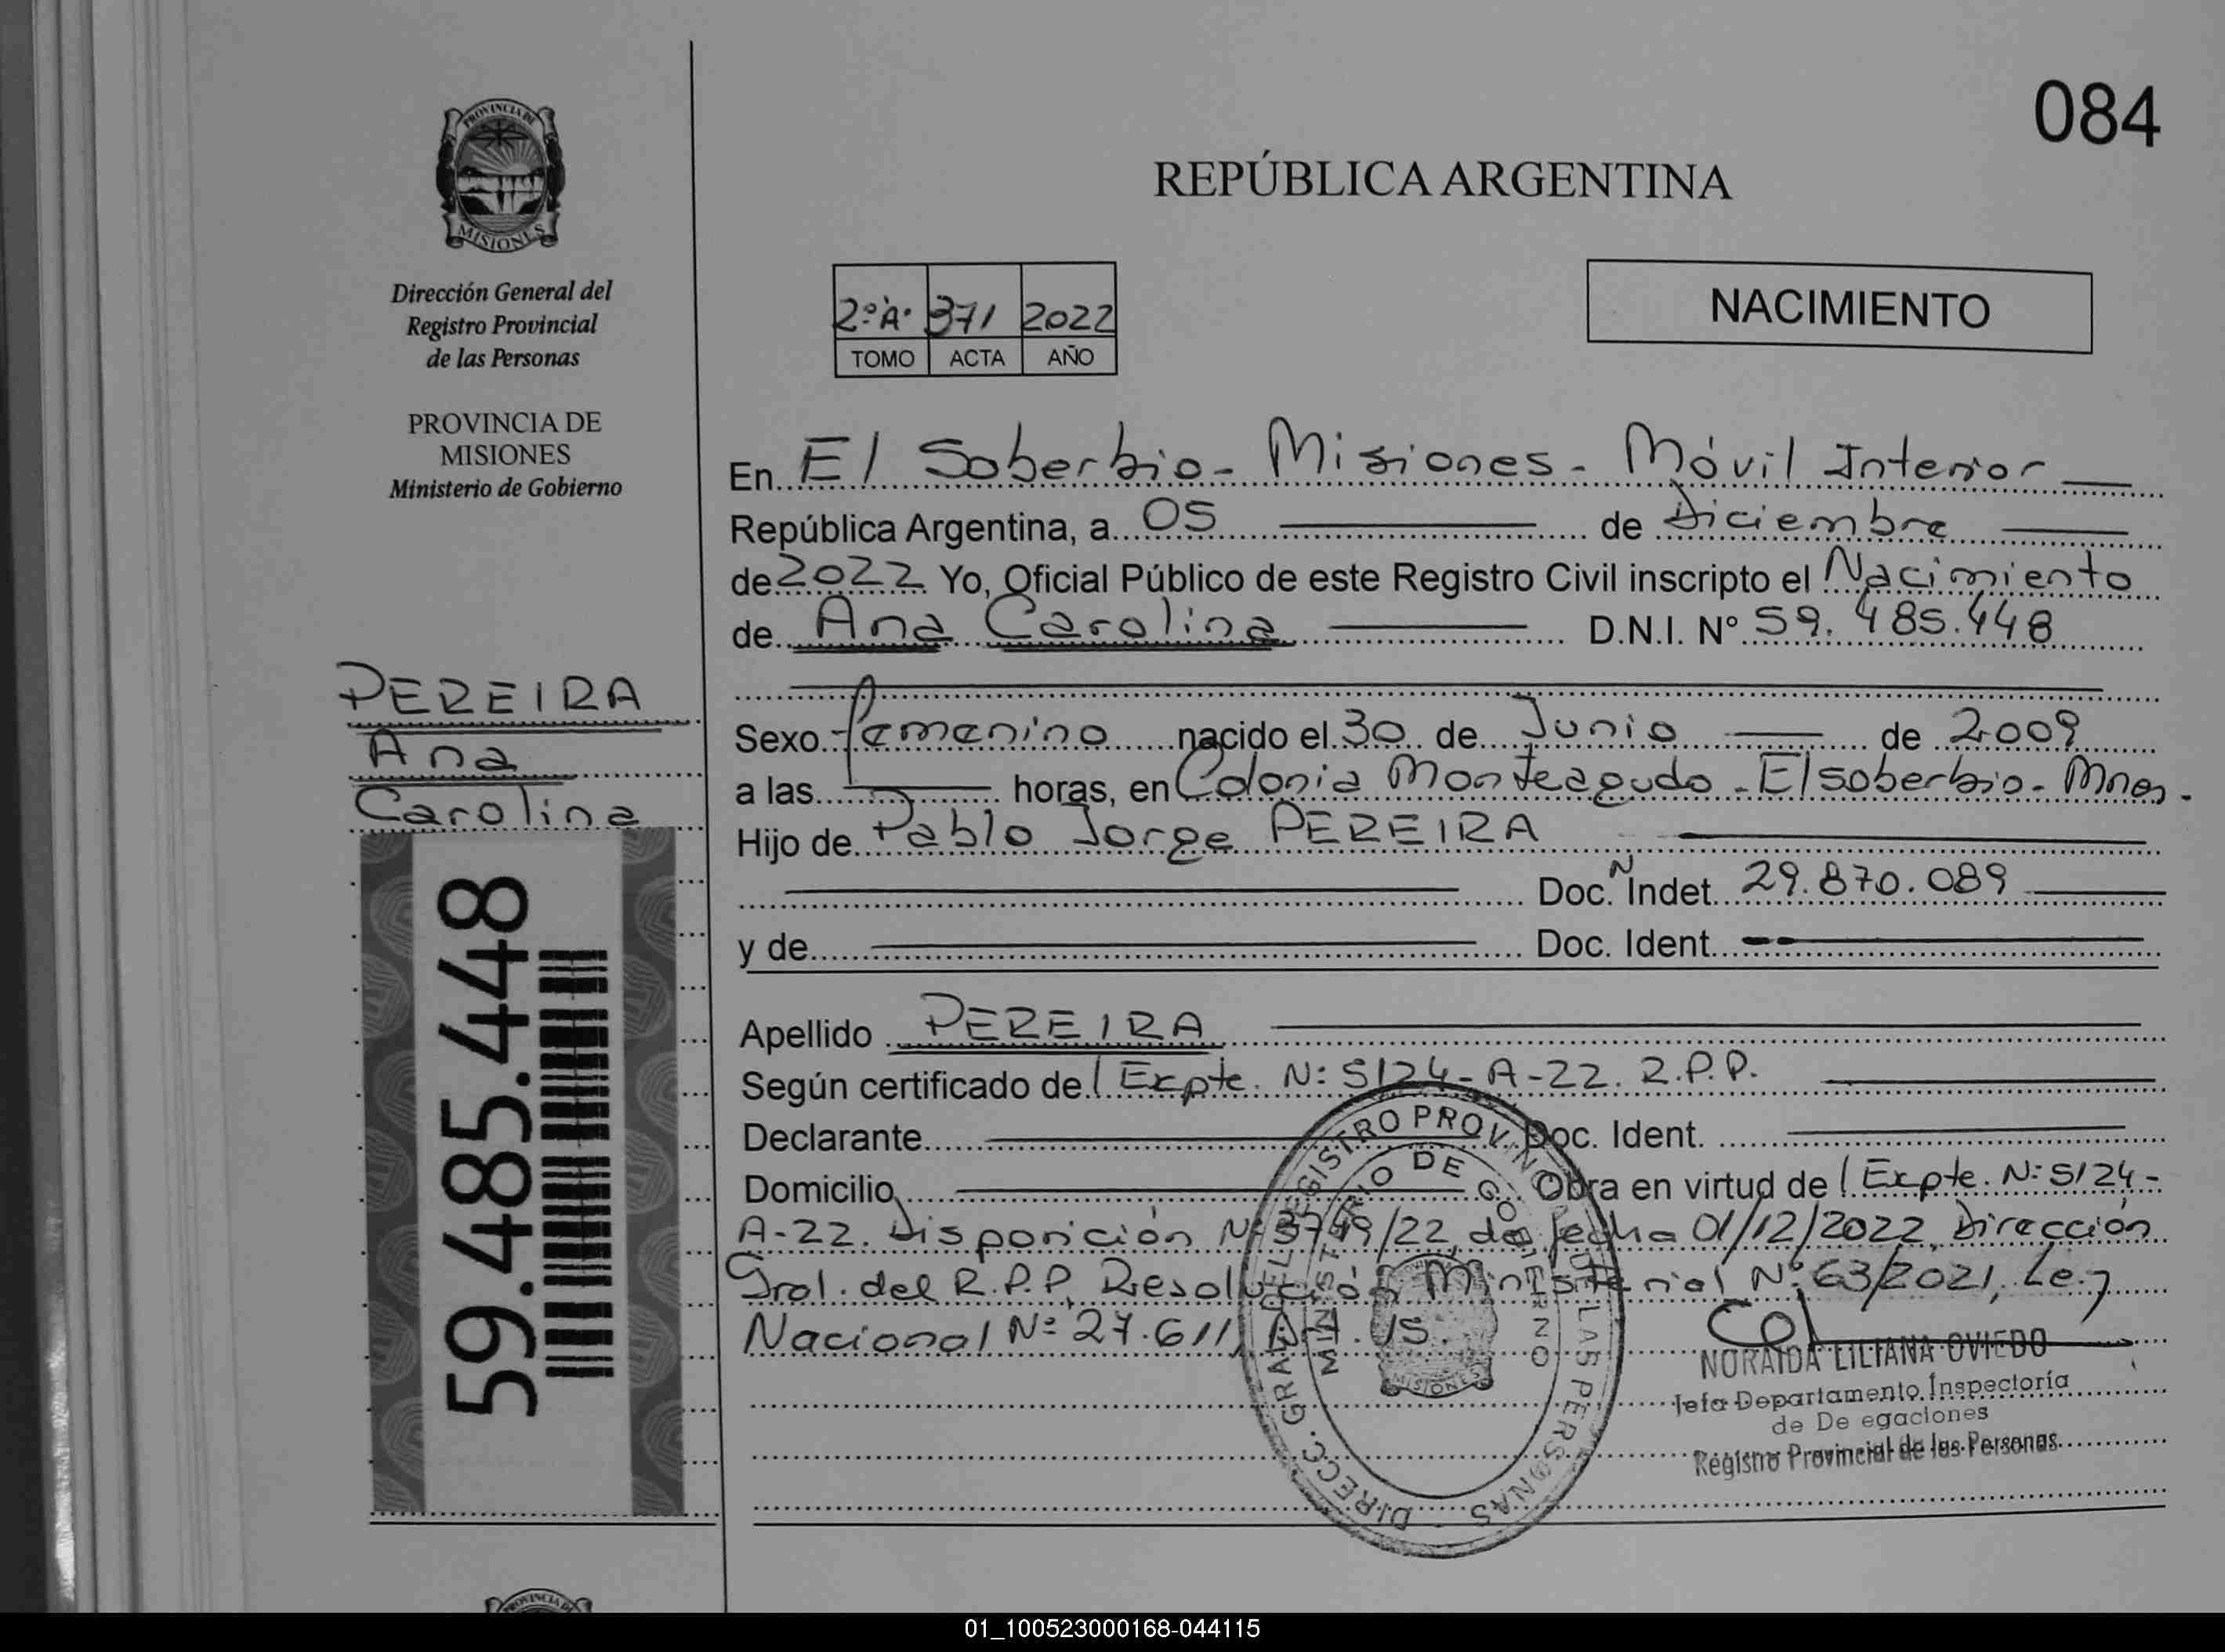 084
PROVINCIA DE
MISIONES
Dirección General del
Registro Provincial
de las Personas
PROVINCIA DE
MISIONES
Ministerio de Gobierno
PEREIRA
Ana
Carolina
59.485.448
REPÚBLICA ARGENTINA
2º A. 371 2022
TOMO ACTA AÑO
NACIMIENTO
En El Soberbio - Misiones - Móvil Interior
República Argentina, a 05 de Diciembre
de 2022 Yo, Oficial Público de este Registro Civil inscripto el Nacimiento
de Ana Carolina D.N.I. Nº 59.485.448
Sexo femenino nacido el 30 de Junio de 2009
a las horas, en Colonia Monteagudo - El soberbio - Mnes.
Hijo de Pablo Jorge PEREIRA
Doc. N Indet. 29.870.089
y de Doc. Ident.
Apellido PEREIRA
Según certificado de l Expte. Nº 5124-A-22. R.P.P.
Declarante Doc. Ident.
Domicilio Obra en virtud de l Expte. Nº 5124-
A-22. Disposición Nº 3749/22 de fecha 01/12/2022, Dirección
Gral. del R.P.P, Resolución Ministerial Nº 63/2021, Ley
Nacional Nº 27.611, Art. 05.
DIRECC. GRAL. DEL REGISTRO PROVINCIAL DE LAS PERSONAS
MINISTERIO DE GOBIERNO
MISIONES
NORAIDA LILIANA OVIEDO
Jefa Departamento Inspectoría
de De egaciones
Registro Provincial de las Personas
PROVINCIA DE
01_100523000168-044115